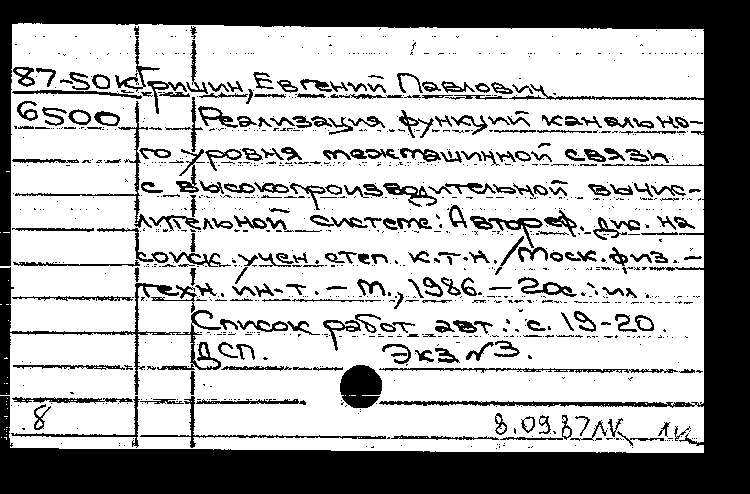 87-50К Гришин, Евгений Павлович.
6500 Реализация функций канально-
го уровня межмашинной связи
с высокопроизводительной вычис-
лительной системе: Автореф. дис. на
соиск. учен. степ. к.т.н. / Моск. физ.-
техн. ин-т. – М., 1986. – 20с.: ил.
Список работ авт.: с. 19-20.
ДСП. Экз. N 3.
8 8.09.87